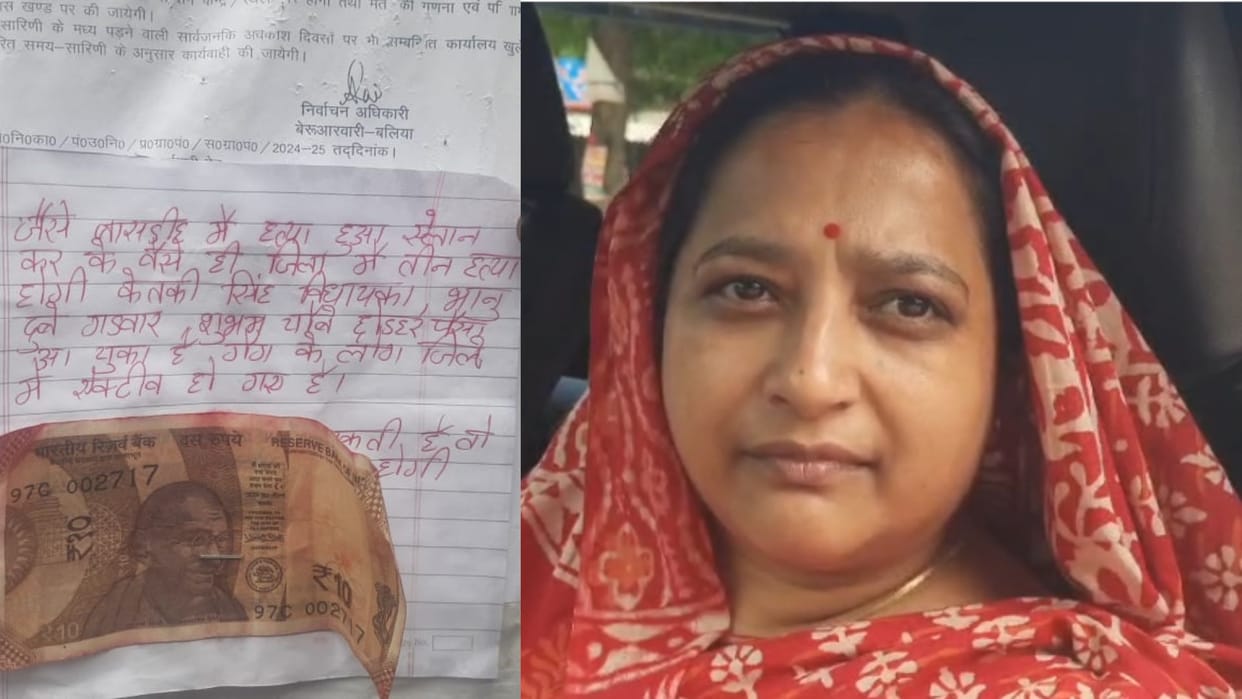 स खण्ड पर की जायेगी।
सारिणी के मध्य पड़ने वाली सार्वजनकि अवकाश दिवसों पर भी सम्बन्धित कार्यालय खुले
रित समय-सारिणी के अनुसार कार्यवाही की जायेगी।
निर्वाचन अधिकारी
बेरूआरवारी-बलिया
0नि0का0/पं0उ0नि0/प्र0ग्रा0पं0/स0ग्रा0पं0/2024-25 तद्दिनांक।
जैसे में हत्या हुआ ऐलान
कर के वैसे ही जिला में तीन हत्या
होगी केतकी सिंह विधायका, भानु
दुबे गडवार, शुभम चौबे पैसा
आ चुका है, गैंग के लोग जिले
में एक्टीव हो गए है।
कती है तो
होगी
भारतीय रिज़र्व बैंक दस रुपये RESERVE BANK OF INDIA
97C 002717
₹10
₹10
97C 002717
₹10